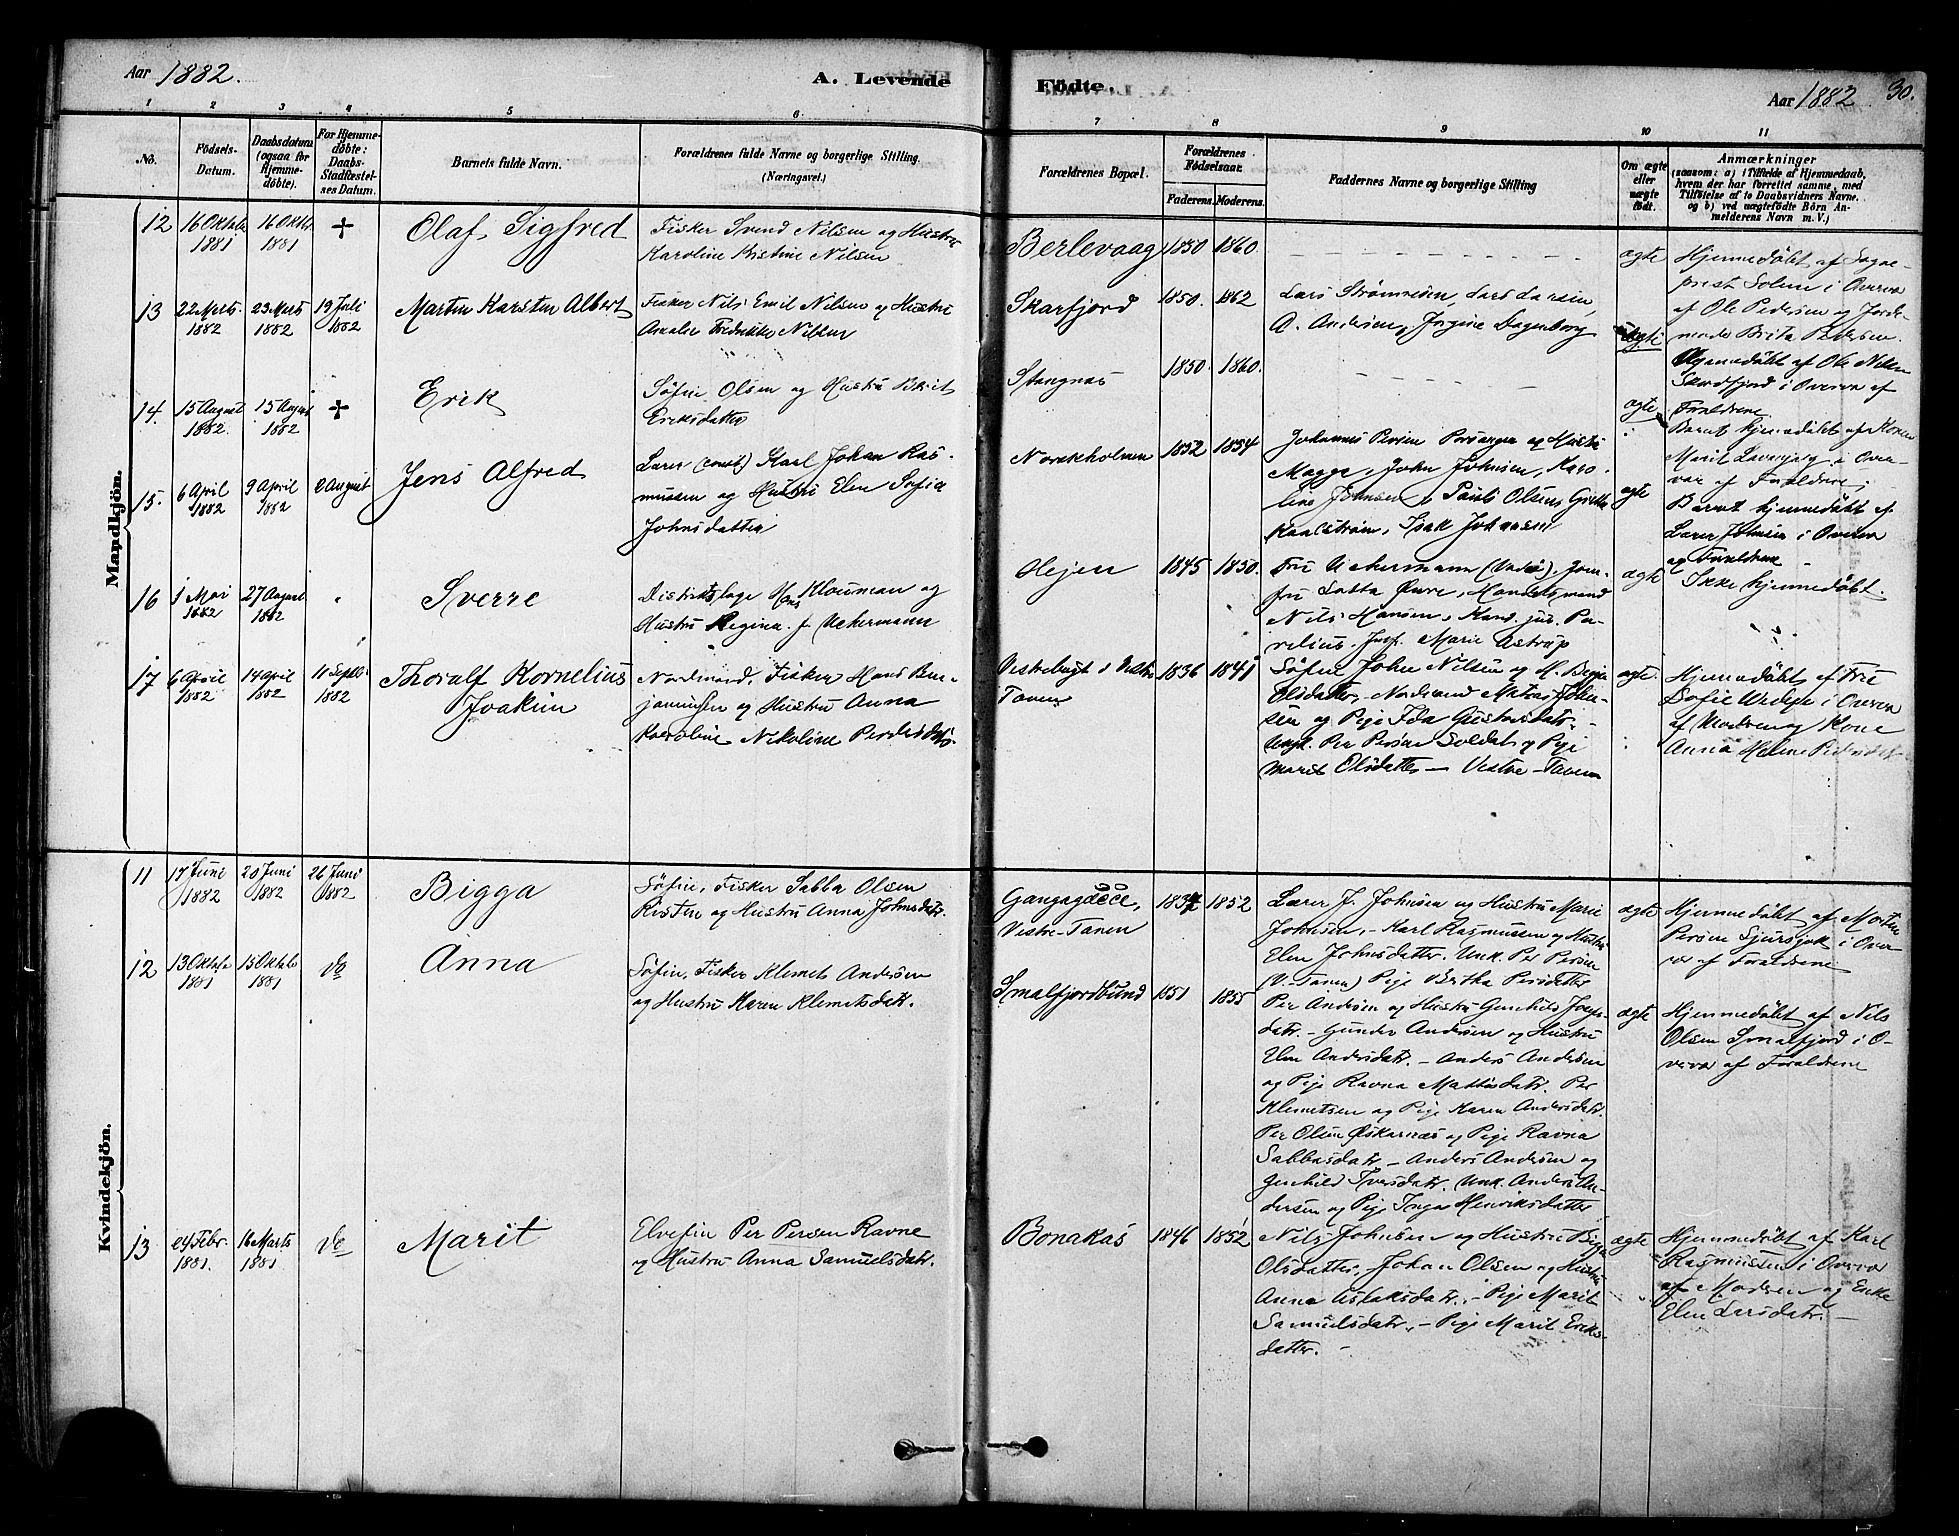 Aar 1882.
A. Levende
Fødte.
Aar 1882
30.
1 2 3 4 5 6
7 8 9 10 11
No.
Fødsels-Datum.
Daabsdatum (ogsaa for Hjemme-døbte).
For Hjemme-døbte: Daabs-Stadfæstel-ses Datum.
Barnets fulde Navn.
Forældrenes fulde Navne og borgerlige Stilling.
(Næringsvei.)
Forældrenes Bopæl.
Forældrenes Fødselsaar.
Faderens. Moderens.
Faddernes Navne og borgerlige Stilling
Om ægte eller uægte født.
Anmærkninger
(saasom: a) i Tilfælde af Hjemmedaab, hvem der har forrettet samme, med Tilføielse af to Daabsvidners Navne. og b) ved uægtefødte Børn An-melderens Navn m. V.)
Mandkjön.
12 16 Oktober 1881 16 Oktbr. 1881 +
Olaf Sigfred
Fisker Svend Nilsen og Hustru
Karoline Kristine Nilsen
Berlevaag 1850 1860
ægte
Hjemmedøbt af Sogne-
prest Solem i Overvær
af Ole Pedersen og Jorde-
moder Brita Pedersen.
13 22 Marts 1882 23 Marts 1882 19 Juli 1882
Martin Karsten Albert
Fisker Nils Emil Nilsen og Hustru
Amalie Fredrikke Nilsen
Skarfjord 1850. 1862
Lars Strømnesen, Lars Larsen,
A. Andersen, Jørgine Dagenborg
ægte
Hjemmedøbt af Ole Nilsen
Skarfjord i Overvær af
Forældrene
14. 15 August 1882. 15 August 1882 +
Erik
Søfin Olsen og Hustru Berit
Eriksdatter
Stangnæs 1850. 1860.
ægte
Barnet hjemmedøbt af Konen
Marit i Over-
vær af Forældrene;
15. 6 April 1882 9 April 1882 2 August
Jens Alfred
Lærer (const) Karl Johan Ras-
mussen og Hustru Elen Sofia
Johnsdatter
Norskholmen 1852 1854
Johannes Persen Porsanger og Hustru
Magga, John Johnsen, Karo-
line Johnsen, Pauls Olsen, Gretha
Karlstrøm, Isak Johnsen
ægte
Barnet hjemmedøbt af
Lærer Johnsen i Overvær
af Forældrene
16 1 Mai 1882 27 August 1882 "
Sverre
Distriktslæge Hans Klouman og
Hustru Regina f. Uchermann
Hejen 1845 1850.
Fru Uchermann (Vadsø), Jom-
fru Lotta Øvre, Handelsmand
Nils Hansen, Kand. jur. Pa-
velius, Jmf. Marie Astrup
ægte
Ikke hjemmedøbt.
17 6 April 1882 14 April 1882 11 Septbr. 1882
Thoralf Kornelius
Joakim
Nordmand, Fisker Hans Ben-
jaminsen og Hustru Anna
Karoline Nikoline Pedersdatr.
Vestrebugt i Vestre
Tanen
1836 1841
Søfin John Nilsen og H. Bigga
Olsdatter, Nordmand Mathias Johan-
sen og Pige Ida Gustavsdatr. -
Ungk. Per Persen Soldat og Pige
Marit Olsdatter — Vestre-Tanen
ægte.
Hjemmedøbt af Fru
Sofie i Overvær
af Moderen og Kone
Anna Helene Pedersdatr
Kvindekjön.
11 17 Juni 1882 20 Juni 1882 26 Juni 1882
Bigga
Søfin, Fisker Sabba Olsen
Risten og Hustru Anna Johnsdatr.
Gangagoĕce,
Vestre-Tanen
1837 1852
Lærer J. Johnsen og Hustru Marie
Johnsen, - Karl Rasmussen og Hustru
Elen Johnsdatter. Unk. Per Persen
(V. Tanen) Pige Beritha Persdatter
ægte
Hjemmedøbt af Morten
Persen Sjursjok i Over-
vær af Forældrene
12 13 Oktober 1881 15 Oktober 1881 do
Anna
Søfin, Fisker Klemet Andersen
og Hustru Karen Klemetsdatr.
Smalfjordbund 1851 1855
Per Andersen og Hustru Gunhild Josefs-
datr. - Gunder Andersen og Hustru
Elen Andersdatr. - Anders Andersen
og Pige Ravna Mattisdatr. Per
Klemetsen og Pige Karen Andersdatr.
Per Olsen Øskarnæs og Pige Ravna
Sabbasdatr - Anders Andersen og
Gunhild Iversdatr. Unk. Anders An-
dersen og Pige Inga Henriksdatter
ægte
Hjemmedøbt af Nils
Olsen Smalfjord i O-
vervær af Forældrene
13 24 Febr. 1881. 16 Marts 1881 do
Marit
Elvefin Per Persen Ravne
og Hustru Anna Samuelsdatr.
Bonakas 1846 1852
Nils Johnsen og Hustru Bigga
Olsdatter, Johan Olsen og Hustru
Anna Aslaksdatr, - Pige Marit
Samuelsdatr, - Pige Marit Eriks-
datter. -
ægte
Hjemmedøbt af Karl
Rasmussen i Overvær
af Moderen og Enke
Elen Larsdatr. -